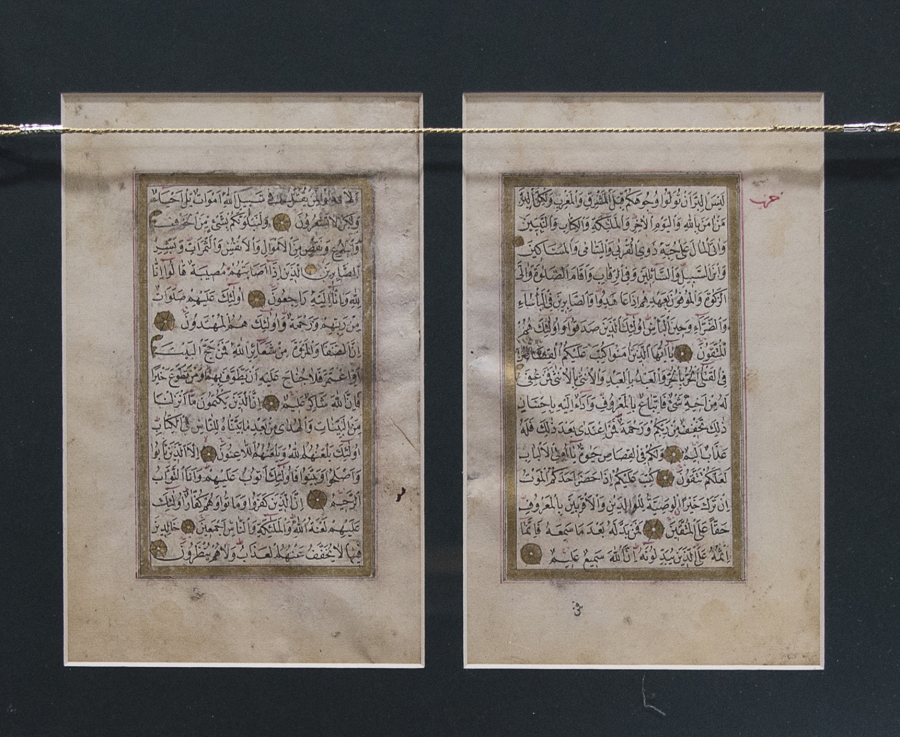 حزب
ليس البر ان تولوا وجوهكم قبل المشرق والمغرب ولكن البر
من امن بالله واليوم الاخر والملئكة والكتاب والنبيين
واتى المال على حبه ذوى القربى واليتامى والمساكين
وابن السبيل والسائلين وفى الرقاب واقام الصلوة واتى
الزكوة والموفون بعهدهم اذا عاهدوا والصابرين فى الباساء
والضراء وحين الباس اولئك الذين صدقوا واولئك هم
المتقون يا ايها الذين امنوا كتب عليكم القصاص
فى القتلى الحر بالحر والعبد بالعبد والانثى بالانثى فمن عفى
له من اخيه شئ فاتباع بالمعروف واداء اليه باحسان
ذلك تخفيف من ربكم ورحمة فمن اعتدى بعد ذلك فله
عذاب اليم ولكم فى القصاص حيوة يا اولى الالباب
لعلكم تتقون كتب عليكم اذا حضر احدكم الموت
ان ترك خيرا الوصية للوالدين والاقربين بالمعروف
حقا على المتقين فمن بدله بعد ما سمعه فانما
اثمه على الذين يبدلونه ان الله سميع عليم
ولا تقولوا لمن يقتل فى سبيل الله اموات بل احياء
ولكن لا تشعرون ولنبلونكم بشئ من الخوف
والجوع ونقص من الاموال والانفس والثمرات وبشر
الصابرين الذين اذا اصابتهم مصيبة قالوا انا
لله وانا اليه راجعون اولئك عليهم صلوات
من ربهم ورحمة واولئك هم المهتدون
ان الصفا والمروة من شعائر الله فمن حج البيت
او اعتمر فلا جناح عليه ان يطوف بهما ومن تطوع خيرا
فان الله شاكر عليم ان الذين يكتمون ما انزلنا
من البينات والهدى من بعد ما بيناه للناس فى الكتاب
اولئك يلعنهم الله ويلعنهم اللاعنون الا الذين تابوا
واصلحوا وبينوا فاولئك اتوب عليهم وانا التواب
الرحيم ان الذين كفروا وماتوا وهم كفار اولئك
عليهم لعنة الله والملئكة والناس اجمعين خالدين
فيها لا يخفف عنهم العذاب ولا هم ينظرون